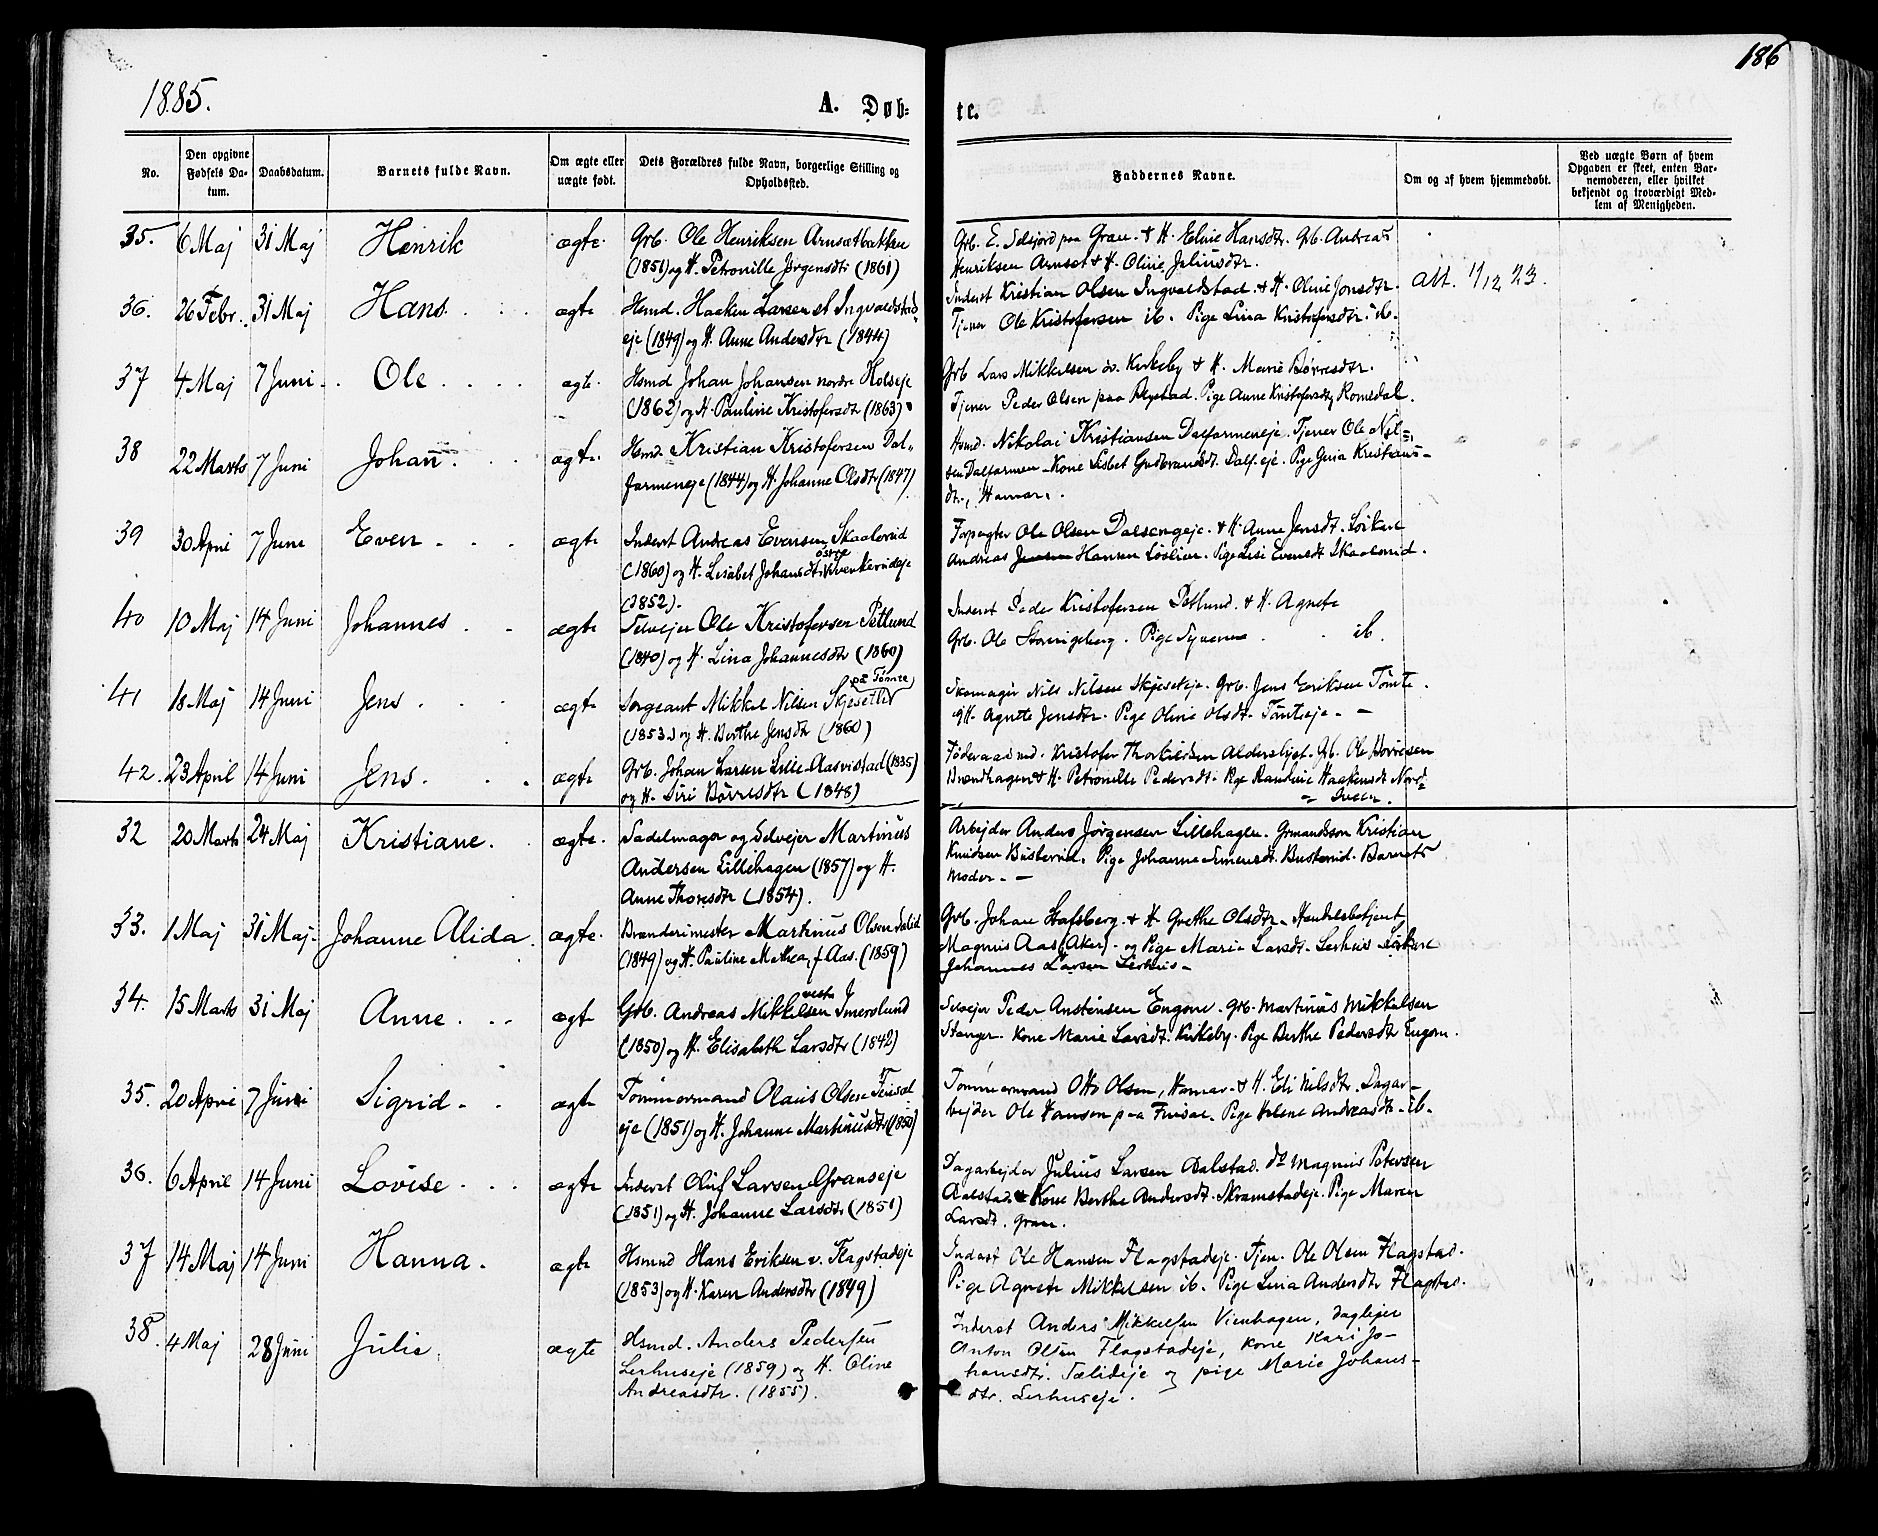 186
1885.
A. Døb-
te.
No.
Den opgivne
Fødsels Da-
tum.
Daabsdatum.
Barnets fulde Navn.
Om ægte eller
uægte født.
Dets Forældres fulde Navn, borgerlige Stilling og
Opholdssted.
Faddernes Navne.
Om og af hvem hjemmedøbt.
Ved uægte Børn af hvem
Opgaven er skeet, enten Bar-
nemoderen, eller hvilket
bekjendt og troværdigt Med-
lem af Menigheden.
35. 6 Maj 31 Maj Henrik ægte.
Grb. Ole Henriksen Arnsætbakken
(1851) og H. Petronille Jørgensdtr (1861)
Grb. E. Selsjord paa Gran. & H. Eline Hansdtr. Grb. Andreas
Henriksen Arnset & H. Oline Juliusdtr.
36. 26 Febr. 31 Maj Hans. ægte
Hsmd. Haaken Larsen et Ingvaldstad-
eje (1849) og H. Anne Andersdtr (1844)
Inderst Kristian Olsen Ingvaldstad. & H. Oline Jonsdtr.
Tjener Ole Kristofersen ib. Pige Lina Kristofersdtr. ib.
Att. 1/12 23.
37 4 Maj 7 Juni Ole ægte.
Hsmd Johan Johansen nordre Holseje
(1862) og H. Pauline Kristofersdtr (1863)
Grb Lars Mikkelsen øv. Kirkeby & H. Marie Børresdtr.
Tjener Peder Olsen paa Rystad. Pige Anne Kristofersdtr Romedal.
38 22 Marts 7 Juni Johan. ægte.
Hsmd. Kristian Kristofersen Dal-
farmeneje (1844) og H. Johanne Olsdtr (1847)
Hsmd. Nikolai Kristiansen Dalfarmeneje. Tjener Ole Nil-
sen Dalfarmen - Kone Lisbet Gudbrandsdt. Dalf.eje. Pige Guria Kristians-
dtr., Hamar.
39 30 April 7 Juni Even ægte
Inderst Andreas Evensen Skaalerud
østre
(1860) og H. Lisabet Johansdtr. Kverkerudeje
(1852).
Forpagter Ole Olsen Dalsengeje. & H. Anne Jensdt. Løiten
Andreas Jensen Hansen Løslien. Pige Lise Evensdt Skaalerud.
40 10 Maj 14 Juni Johannes ægte
Selvejer Ole Kristofersen Pellund
(1840) og H. Lina Johannesdtr (1860)
Inderst Peder Kristofersen Pellund. & H. Agnete
Grb. Ole Storrigsberg. Pige Syverine ib.
41 18 Maj 14 Juni Jens ægte
på Tømte
Sergeant Mikkel Nilsen Skjeset
(1853) og H. Berthe Jensdtr (1860)
Skomager Nils Nilsen Skjeseteje. Grb. Jens Eriksen Tømte.
H. Agnete Jensdtr. Pige Oline Olsdt. Tømteeje.
42. 23 April 14 Juni Jens. ægte
Grb. Johan Larsen Lille-Aasvistad (1835)
og H. Siri Børresdtr (1848)
Føderaadsmd. Kristofer Thorkildsen Alderslyst. Grb. Ole Børresen
Brandhagen & H. Petronille Pedersdt. Pige Randine Haakensdt Nord-
Sveen.
32 20 Marts 24 Maj Kristiane. ægte.
Sadelmager og Selvejer Martinus
Andersen Lillehagen (1857) og H.
Anne Thoresdtr (1854).
Arbejder Anders Jørgensen Lillehagen. Grmandssøn Kristian
Knudsen Busterud. Pige Johanne Simensdt. Busterud. Barnets
Moder.
33. 1 Maj 31 Maj. Johanne Alida. ægte.
Brænderimester Martinus Olsen Sælid
(1849) og H. Pauline Mathea, f. Aas. (1859)
Grb. Johan Stafsberg. & H. Grethe Olsdtr. Handelsbetjent
Magnus Aas (Aker). og Pige Marie Larsdt. Lerhus
Johannes Larsen Lerhus
34. 15 Marts 31 Maj Anne ægt
vestre
Grb. Andreas Mikkelsen Imerslund
(1850) og H. Elisabeth Larsdtr (1842)
Selvejer Peder Anstensen Engom. Grb. Martinus Mikkelsen
Stanger. Kone Marie Larsdt. Kirkeby. Pige Berthe Pedersdtr Engom.
35. 20 April 7 Juni Sigrid ægte
Tømmermand Olaus Olsen Finsal
eje (1851) og H. Johanne Martinusdtr (1850)
Tømmermand Otto Olsen, Hamar. & H. Edi Nilsdtr. Dagar-
bejder Ole Hansen paa Finsal. Pige Helene Andreasdtr. ib.
36. 6 April 14 Juni Lovise ægte
Inderst Oluf Larsen Granseje
(1851) og H. Johanne Larsdtr (1851)
Dagarbejder Julius Larsen Aalstad. do Magnus Petersen
Aalstad & Kone Berthe Andersdt. Skramstadeje. Pige Maren
Larsdt. Gran.
37 14 Maj 14 Juni Hanna. ægte
Hsmnd Hans Eriksen v. Flagstadeje
(1853) og H. Karen Andersdtr (1849)
Inderst Ole Hansen Flagstadeje. Tjen. Ole Olsen Flagstad.
Pige Agnete Mikkelsen ib. Pige Lina Andersdtr Flagstad.
38. 4 Maj 28 Juni Julie. ægte
Hsmd. Anders Pedersen
Lerhuseje (1859) og H. Oline
Andreasdtr. (1855).
Inderst Anders Mikkelsen Vienhagen, daglejer
Anton Olsen Flagstadeje, Kone Kari Jo-
hansdtr. Sælideje og pige Marie Johans-
dtr. Lerhuseje.